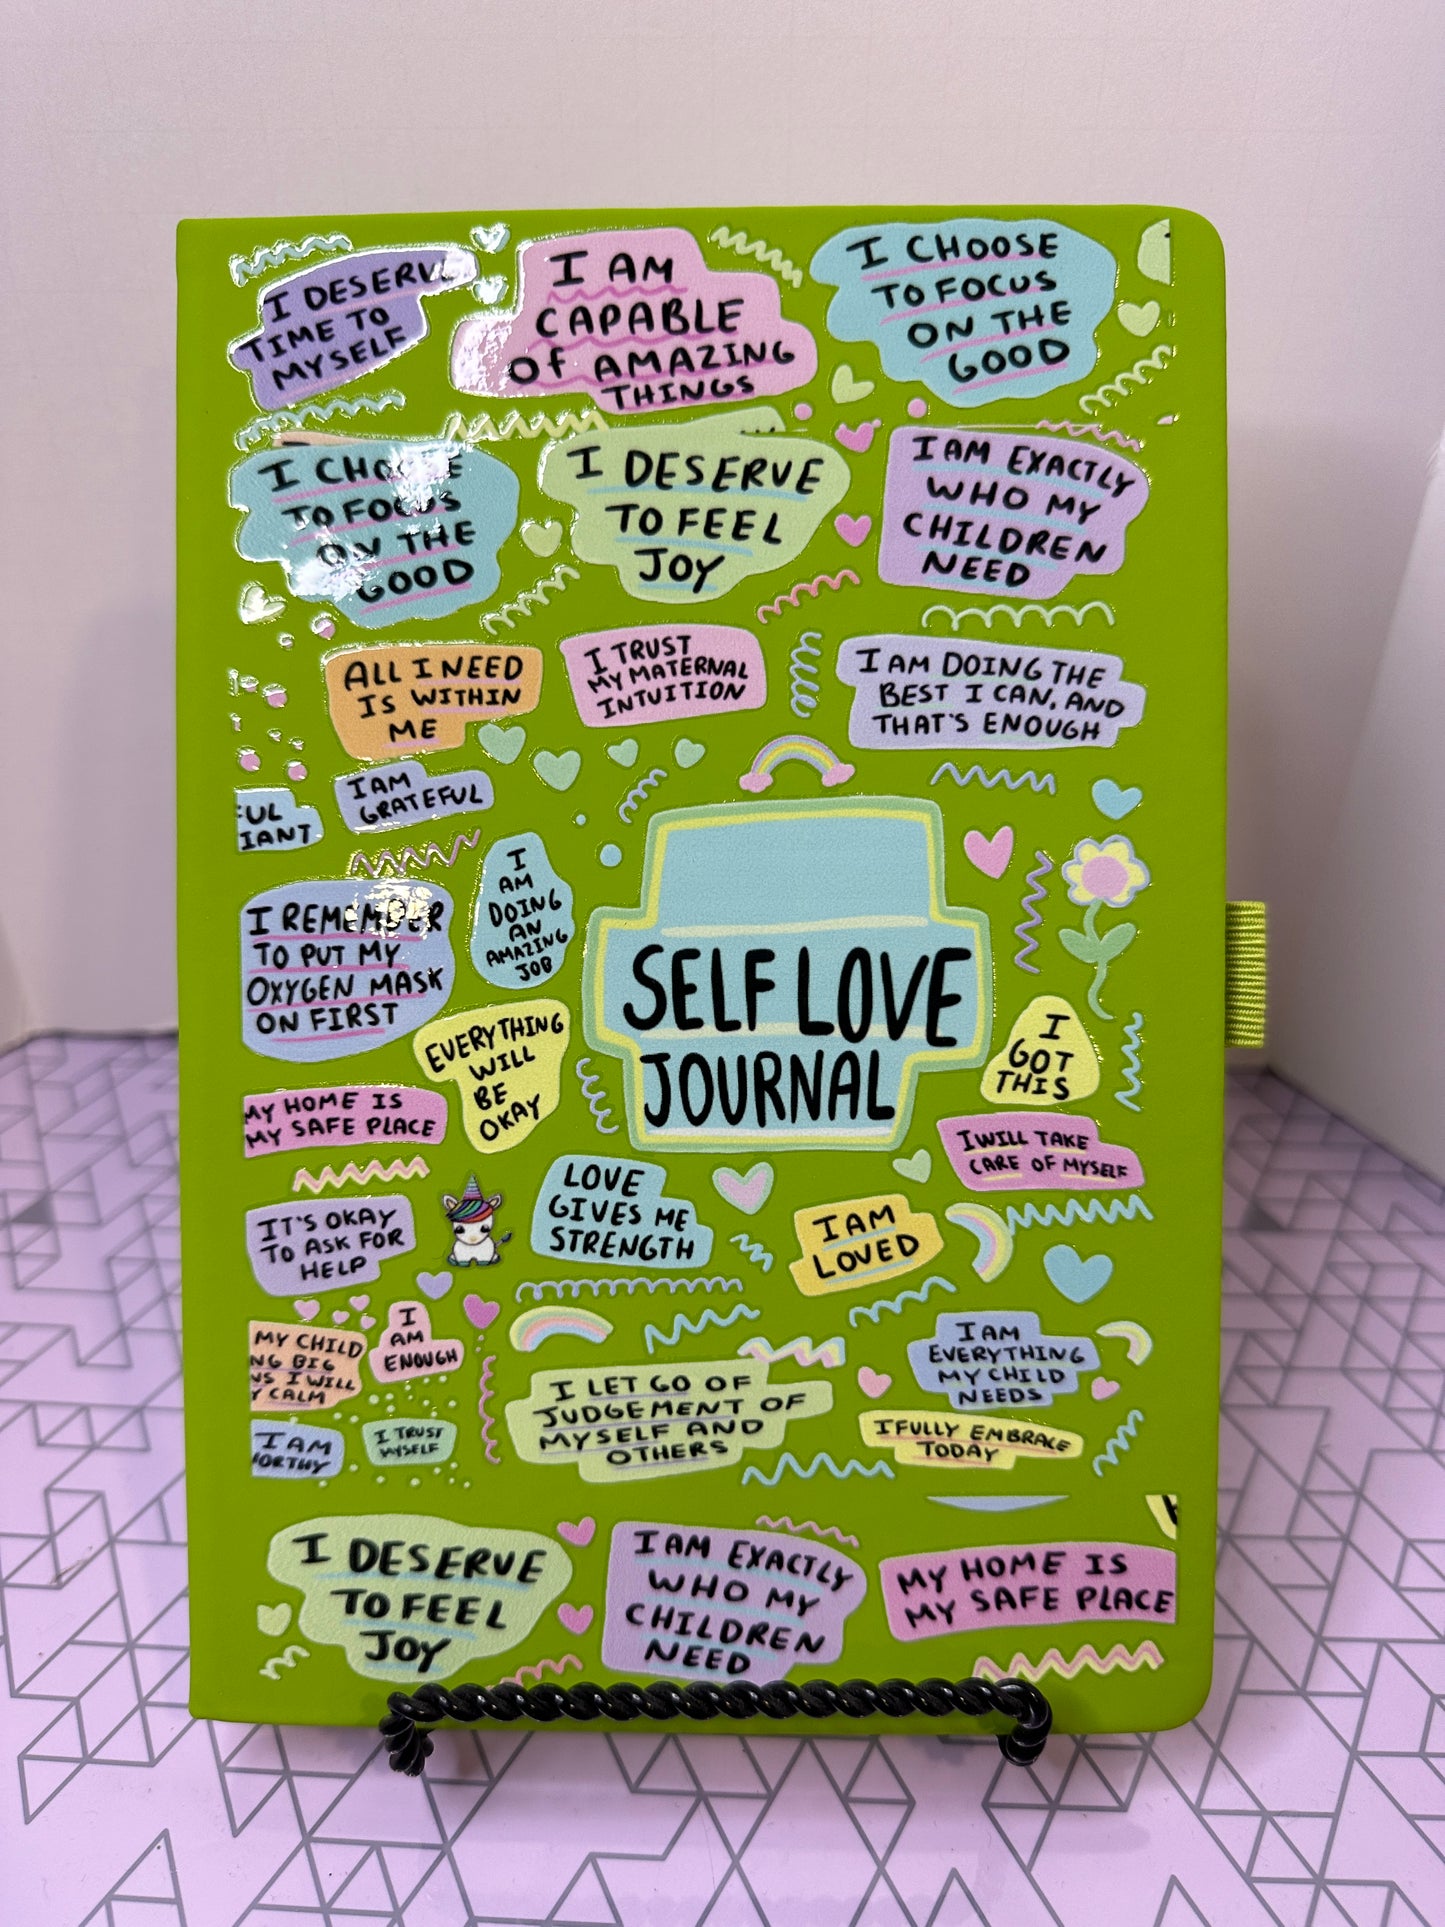 I DESERVE
TIME TO
MYSELF
I AM
CAPABLE
OF AMAZING
THINGS
I CHOOSE
TO FOCUS
ON THE
GOOD
I CHOOSE
TO FOCUS
ON THE
GOOD
I DESERVE
TO FEEL
JOY
I AM EXACTLY
WHO MY
CHILDREN
NEED
ALL I NEED
IS WITHIN
ME
I TRUST
MY MATERNAL
INTUITION
I AM DOING THE
BEST I CAN, AND
THAT'S ENOUGH
UL
IANT
I AM
GRATEFUL
I REMEMBER
TO PUT MY
OXYGEN MASK
ON FIRST
I
AM
DOING
AN
AMAZING
JOB
SELF LOVE
JOURNAL
EVERYTHING
WILL
BE
OKAY
I
GOT
THIS
MY HOME IS
MY SAFE PLACE
I WILL TAKE
CARE OF MYSELF
IT'S OKAY
TO ASK FOR
HELP
LOVE
GIVES ME
STRENGTH
I AM
LOVED
MY CHILD
NG BIG
NS I WILL
Y CALM
I
AM
ENOUGH
I AM
EVERYTHING
MY CHILD
NEEDS
I AM
ORTHY
I TRUST
MYSELF
I LET GO OF
JUDGEMENT OF
MYSELF AND
OTHERS
I FULLY EMBRACE
TODAY
I DESERVE
TO FEEL
JOY
I AM EXACTLY
WHO MY
CHILDREN
NEED
MY HOME IS
MY SAFE PLACE